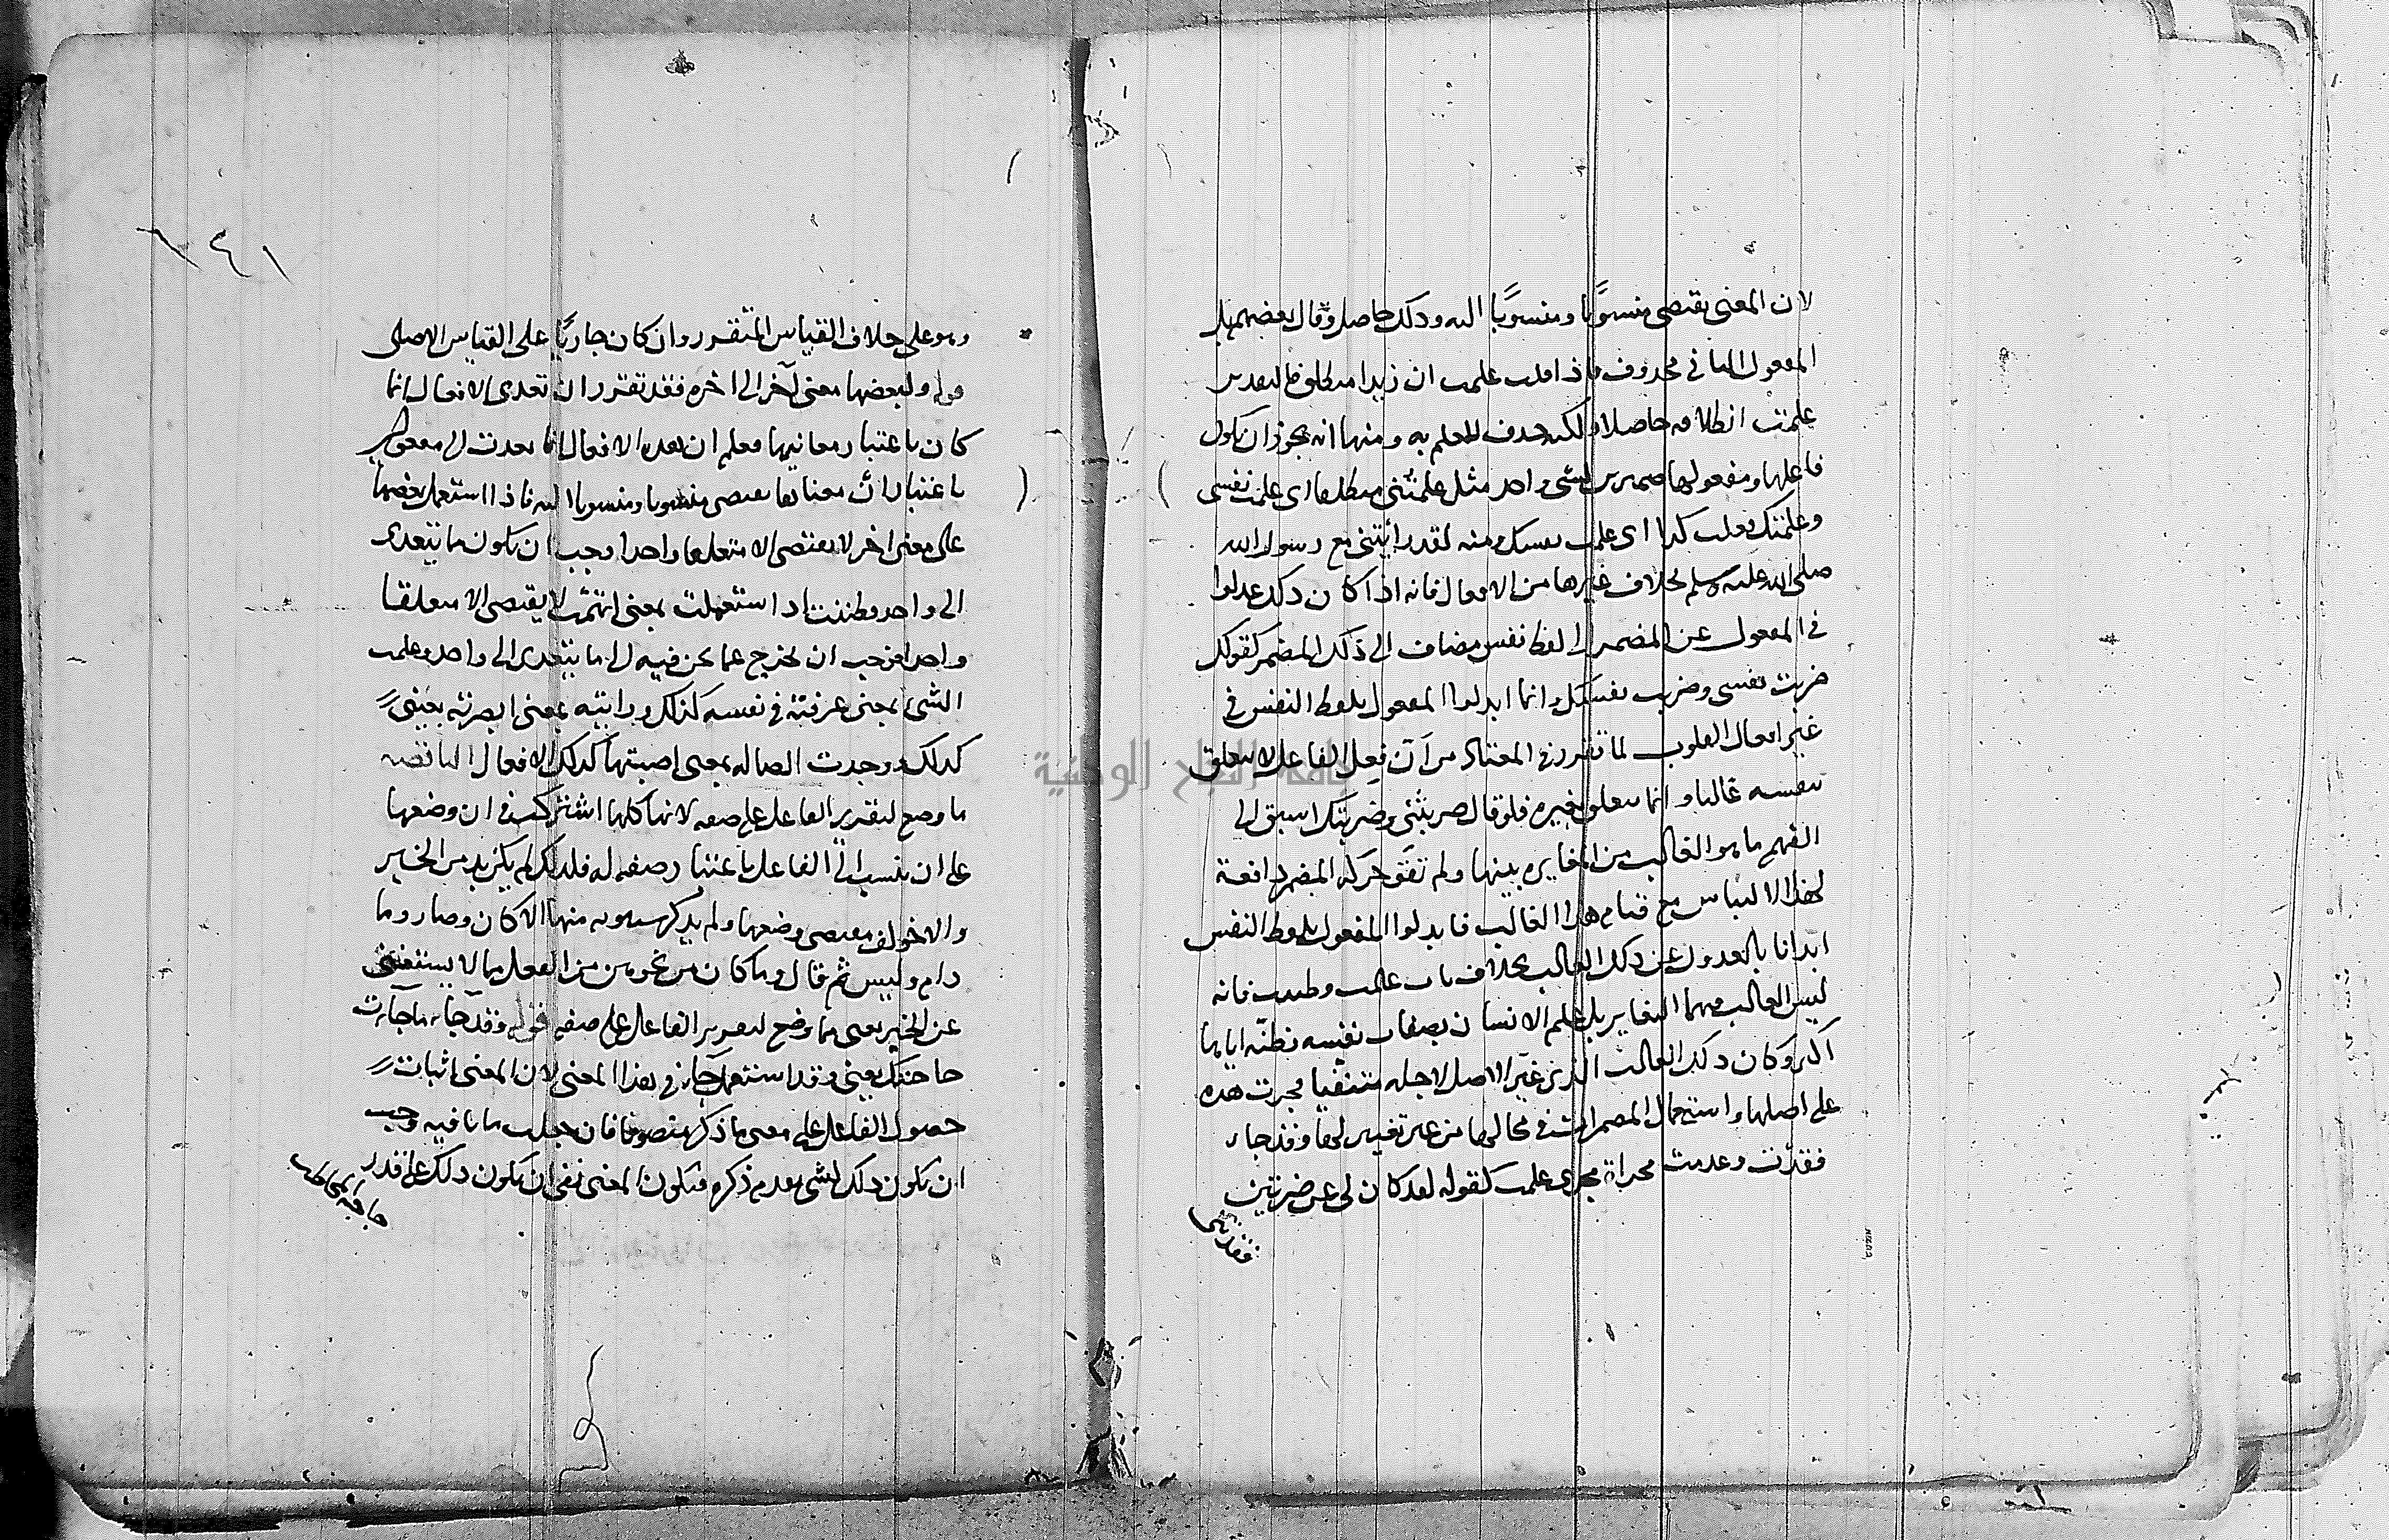 لان المعنى يقتضى منسوبًا ومنسوبًا اليه وذلك حاصل وقال بعضهم بل
المفعول الثانى محذوف فاذا قلت علمت ان زيدا منطلق فالتقدير
علمت انطلاقه حاصلا ولكنه حذف للعلم به ومنها انه يجوز ان يكون
فاعلها ومفعولها ضميرين لشى واحد مثل علمتنى منطلقا اى علمت نفسى
وعلمتك فعلت كذا اى علمت نفسك ومنه لقد رأيتنى مع رسول الله
صلى الله عليه وسلم بخلاف غيرها من الافعال فانه اذا كان ذلك عدلوا
فى المفعول عن المضمر الى لفظ نفس مضاف الى ذلك المضمر كقولك
ضربت نفسى وضربت نفسك وانما ابدلوا المفعول بلفظ النفس فى
غير افعال القلوب لما تقرر فى المعتاد من أن فعل الفاعل لا يتعلق
بنفسه غالبا وانما يتعلق بغيره فلو قال ضربتنى وضربتك لسبق الى
الفهم ما هو الغالب من المغايره بينها ولم تقو حركة المضمر دافعة
لهذا الالتباس مع قيام هذا الغالب فابدلوا المفعول بلفظ النفس
ايذانا بالعدول عن ذلك الغالب بخلاف باب علمت وظننت فانه
ليس الغالب فيهما التغاير بل علم الانسان بصفات نفسه وظنه اياها
اكثر وكان ذلك الغالب الذى غير الاصل لاجله منتفيا فجرت هذه
على اصلها واستعمال المضمرات فى محالها من غير تغيير لها وقد جاء
فقدت وعدمت مجراة مجرى علمت كقوله لقد كان لى عن ضرتين
١٤١
وهو على خلاف القياس المتقرر وان كان جاريًا على القياس الاصلى
قوله ولبعضها معنى آخر الى اخره فقد تقرر ان تعدى الافعال انما
كان باعتبار معانيها فعلم ان هذه الافعال انما تعدت الى مفعولين
باعتبار أن معناها يقتضى منسوبا ومنسوبا اليه فاذا استعمل بعضها
على معنى اخر لا يقتضى الا متعلقا واحدا وجب ان يكون مما يتعدى
الى واحد وظننت اذا استعملت بمعنى اتهمت لا يقتضى الا متعلقا
واحدا فوجب ان يخرج عما نحن فيه الى ما يتعدى الى واحد وعلمت
الشى بمعنى عرفته فى نفسه كذلك ورايته بمعنى ابصرته بعينى
كذلك ووجدت الضالة بمعنى اصبتها كذلك الافعال الناقصه
ما وضع لتقرير الفاعل على صفه لانها كلها اشتركت فى ان وضعها
على ان ينسب الى الفاعل باعتبار صفه له فلذلك لم يكن بد من الخبر
والا خولف مقتضى وضعها ولم يذكر سيبويه منها الا كان وصار وما
دام وليس ثم قال وما كان من نحوهن من الفعل مما لا يستغنى
عن الخبر يعنى مما وضع لتقرير الفاعل على صفه قوله وقد جاء ما جاءت
حاجتك يعنى وقد استعمل جاء فى هذا المعنى لان المعنى اثبات
حصول الفاعل على معنى ما ذكر منصوبا فان جعلت ما نافيه وجب
ان يكون ذلك لشى تقدم ذكره فيكون المعنى نفى ان يكون ذلك على قدر
حاجة المخاطب